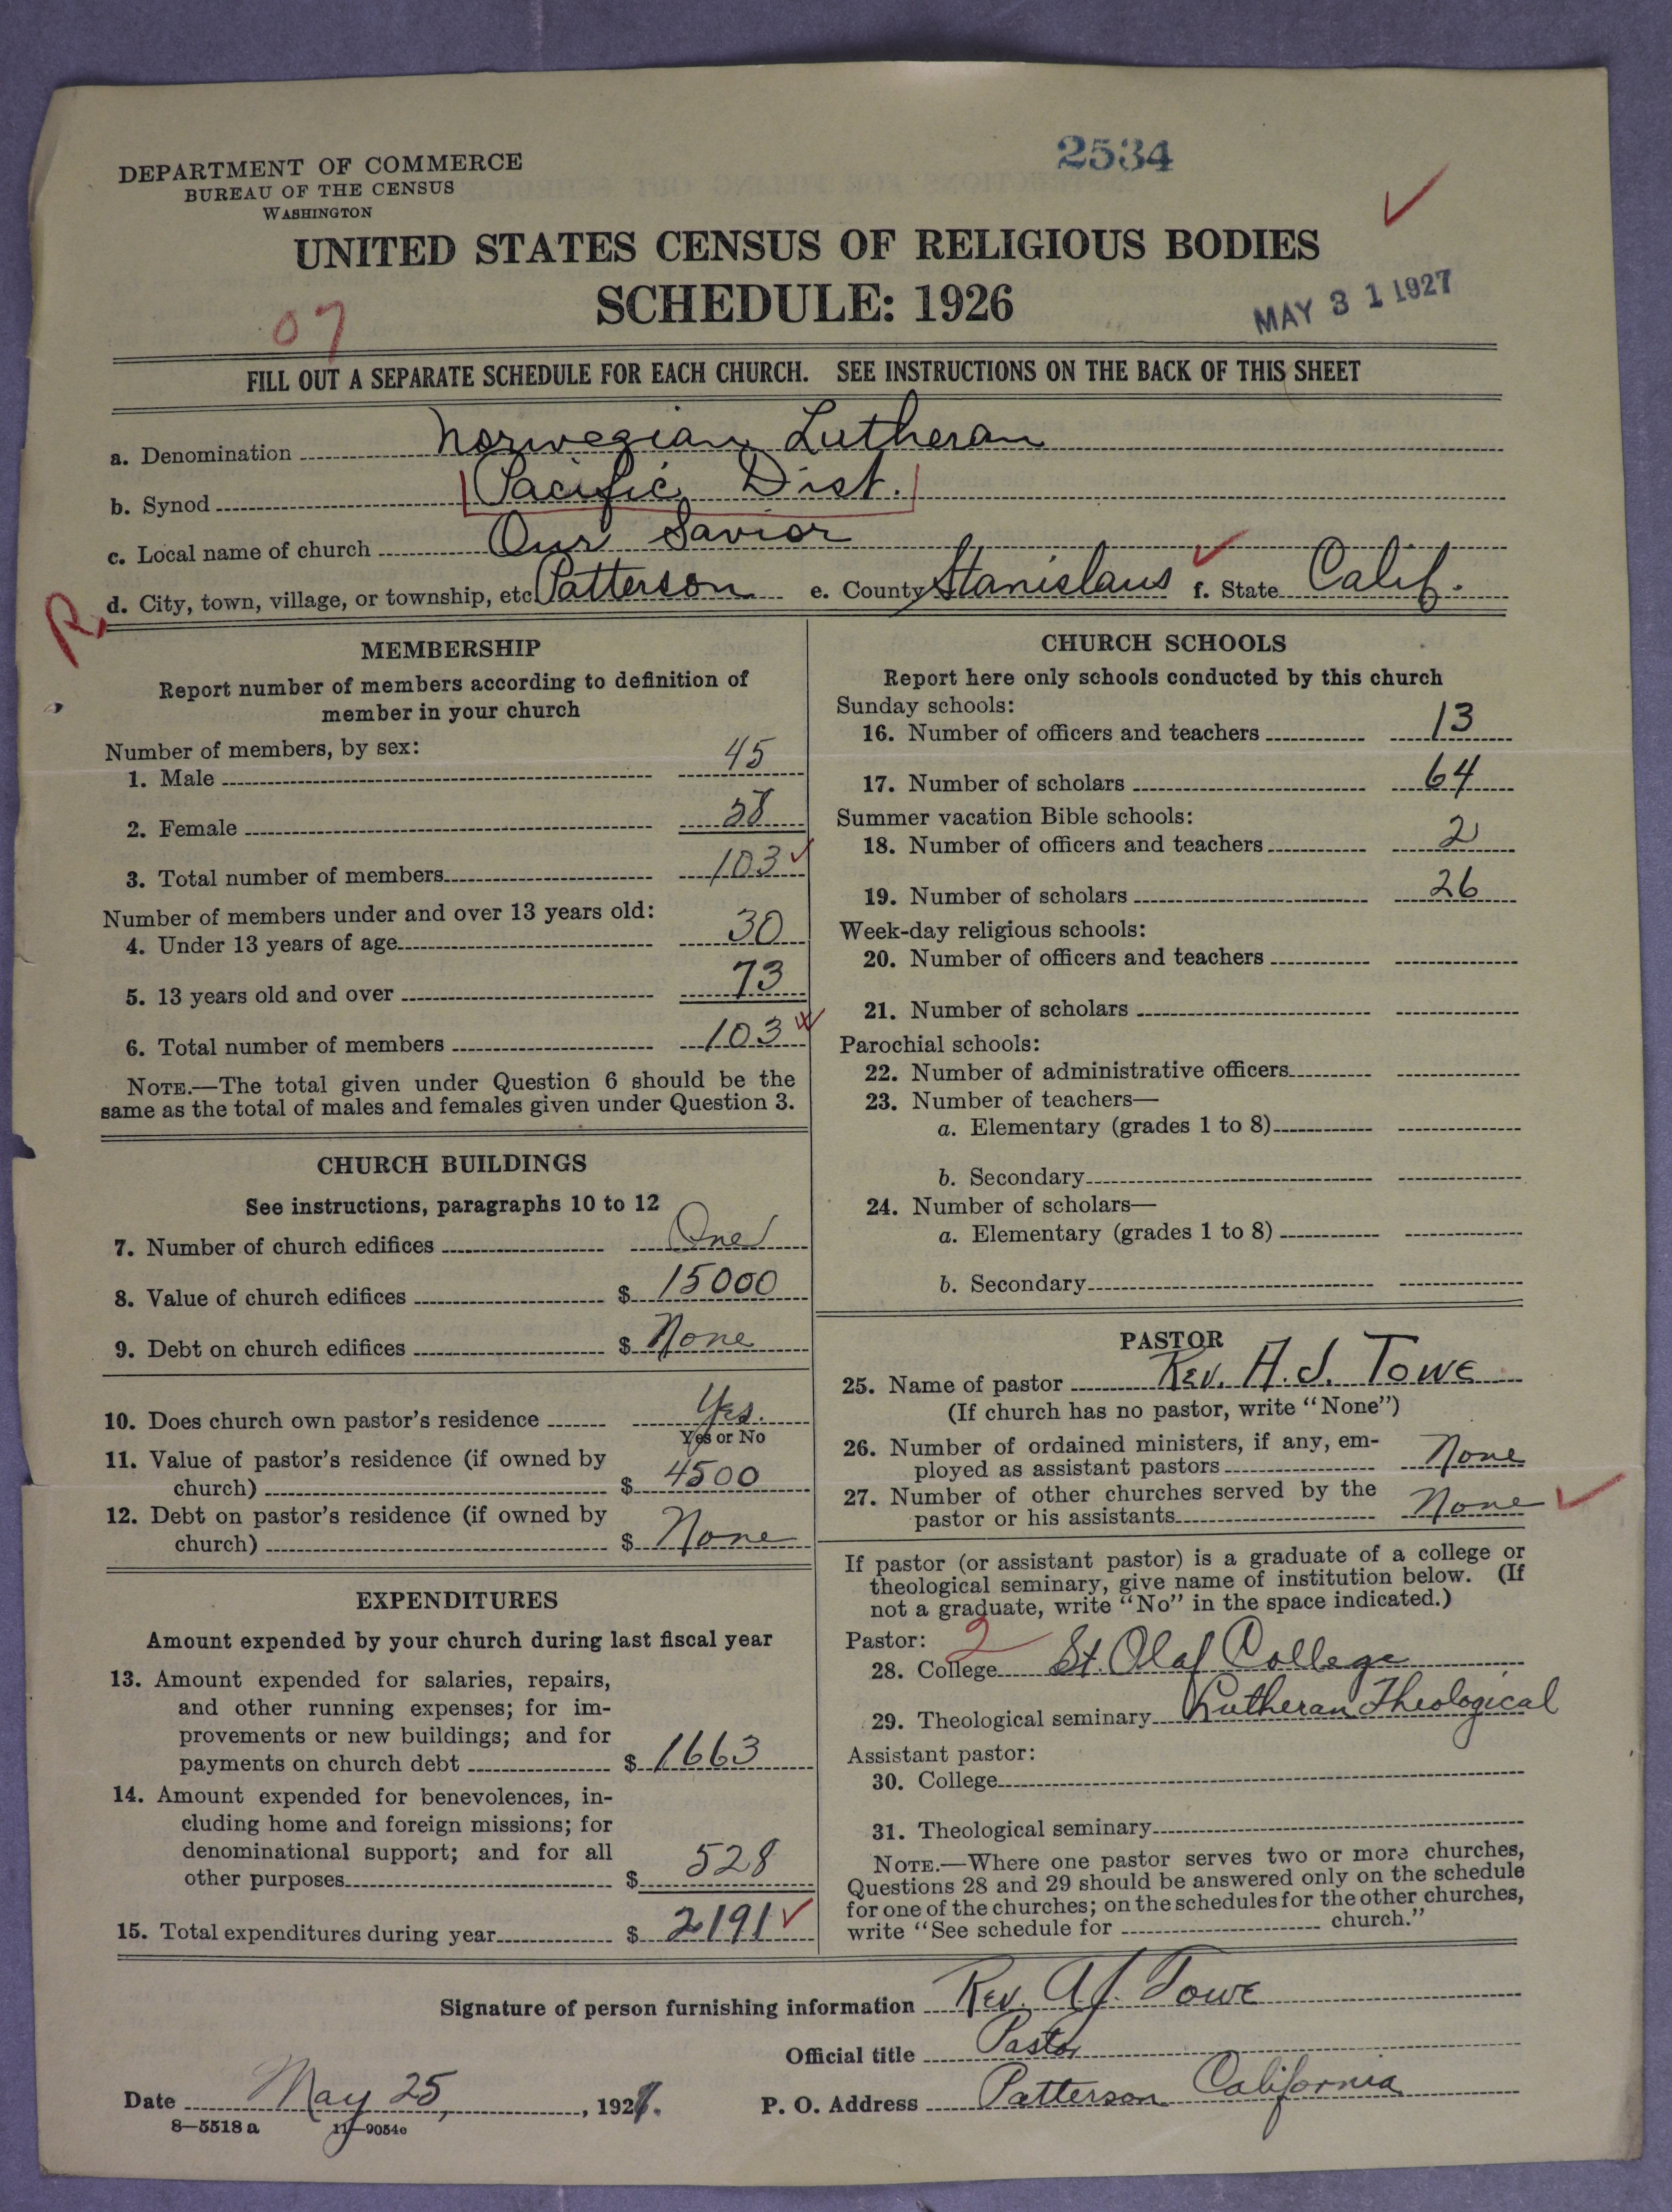 2534
DEPARTMENT OF COMMERCE
BUREAU OF THE CENSUS
WASHINGTON
UNITED STATES CENSUS OF RELIGIOUS BODIES
SCHEDULE: 1926
MAY 31 1927
07
FILL OUT A SEPARATE SCHEDULE FOR EACH CHURCH. SEE INSTRUCTIONS ON THE BACK OF THIS SHEET
a. Denomination Norwegian Lutheran
b. Synod Pacific Dist.
c. Local name of church Our Savior
R d. City, town, village, or township, etc Patterson e. County Stanislaus f. State Calif.
MEMBERSHIP
Report number of members according to definition of
member in your church
Number of members, by sex:
1. Male 45
2. Female
3. Total number of members 103
Number of members under and over 13 years old:
4. Under 13 years of age 30
5. 13 years old and over 73
6. Total number of members 103
NOTE.—The total given under Question 6 should be the
same as the total of males and females given under Question 3.
CHURCH BUILDINGS
See instructions, paragraphs 10 to 12
7. Number of church edifices One
8. Value of church edifices $ 15000
9. Debt on church edifices $ None
10. Does church own pastor's residence Yes.
Yes or No
11. Value of pastor's residence (if owned by
church) $ 4500
12. Debt on pastor's residence (if owned by
church) $ None
EXPENDITURES
Amount expended by your church during last fiscal year
13. Amount expended for salaries, repairs,
and other running expenses; for im-
provements or new buildings; and for
payments on church debt $ 1663
14. Amount expended for benevolences, in-
cluding home and foreign missions; for
denominational support; and for all
other purposes $ 528
15. Total expenditures during year $ 2191
CHURCH SCHOOLS
Report here only schools conducted by this church
Sunday schools:
16. Number of officers and teachers 13
17. Number of scholars 64
Summer vacation Bible schools:
18. Number of officers and teachers 2
19. Number of scholars 26
Week-day religious schools:
20. Number of officers and teachers
21. Number of scholars
Parochial schools:
22. Number of administrative officers
23. Number of teachers—
a. Elementary (grades 1 to 8)
b. Secondary
24. Number of scholars—
a. Elementary (grades 1 to 8)
b. Secondary
PASTOR
25. Name of pastor Rev. A. J. Towe
(If church has no pastor, write "None")
26. Number of ordained ministers, if any, em-
ployed as assistant pastors None
27. Number of other churches served by the
pastor or his assistants None
If pastor (or assistant pastor) is a graduate of a college or
theological seminary, give name of institution below. (If
not a graduate, write "No" in the space indicated.)
Pastor: 2
28. College St. Olaf College
29. Theological seminary Lutheran Theological
Assistant pastor:
30. College
31. Theological seminary
NOTE.—Where one pastor serves two or more churches,
Questions 28 and 29 should be answered only on the schedule
for one of the churches; on the schedules for the other churches,
write "See schedule for church."
Signature of person furnishing information Rev. A. J. Towe
Official title Pastor
Date May 25, 1927. P. O. Address Patterson California
8—5518 a 11—9054c